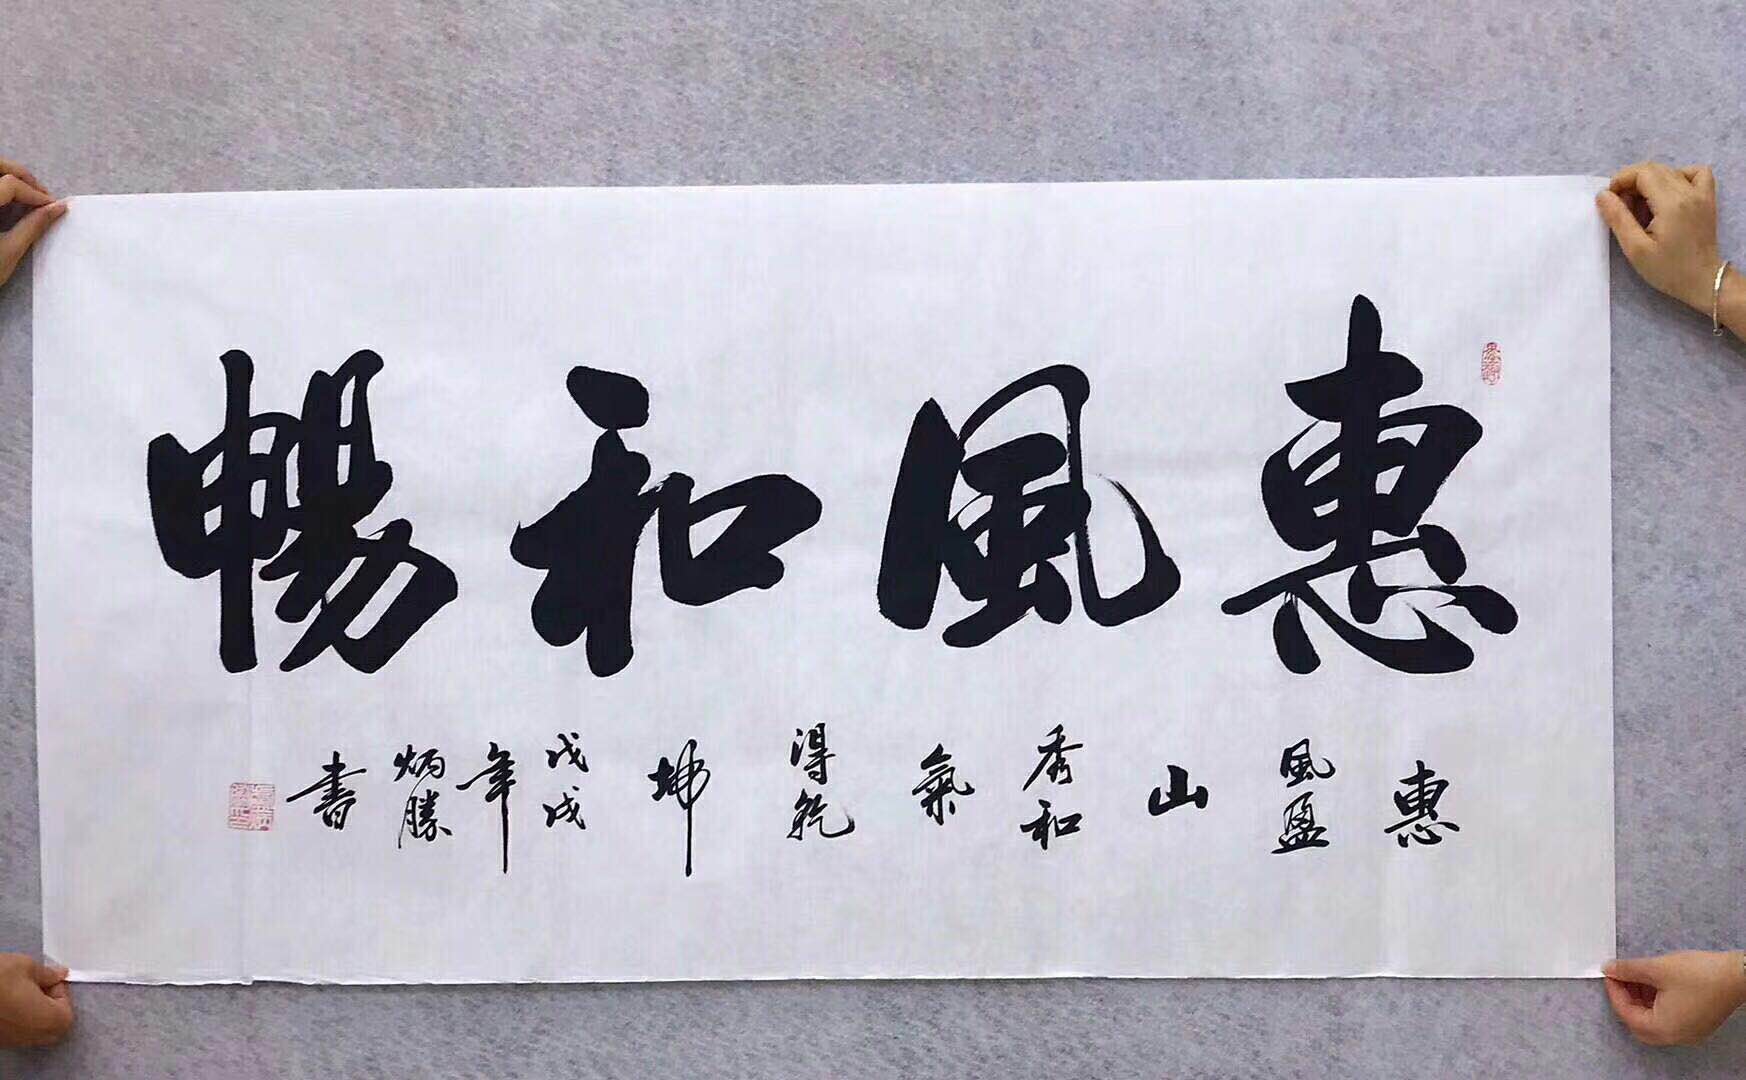 惠風和暢
惠風盈山秀和氣得乾坤
戊戌年炳勝書